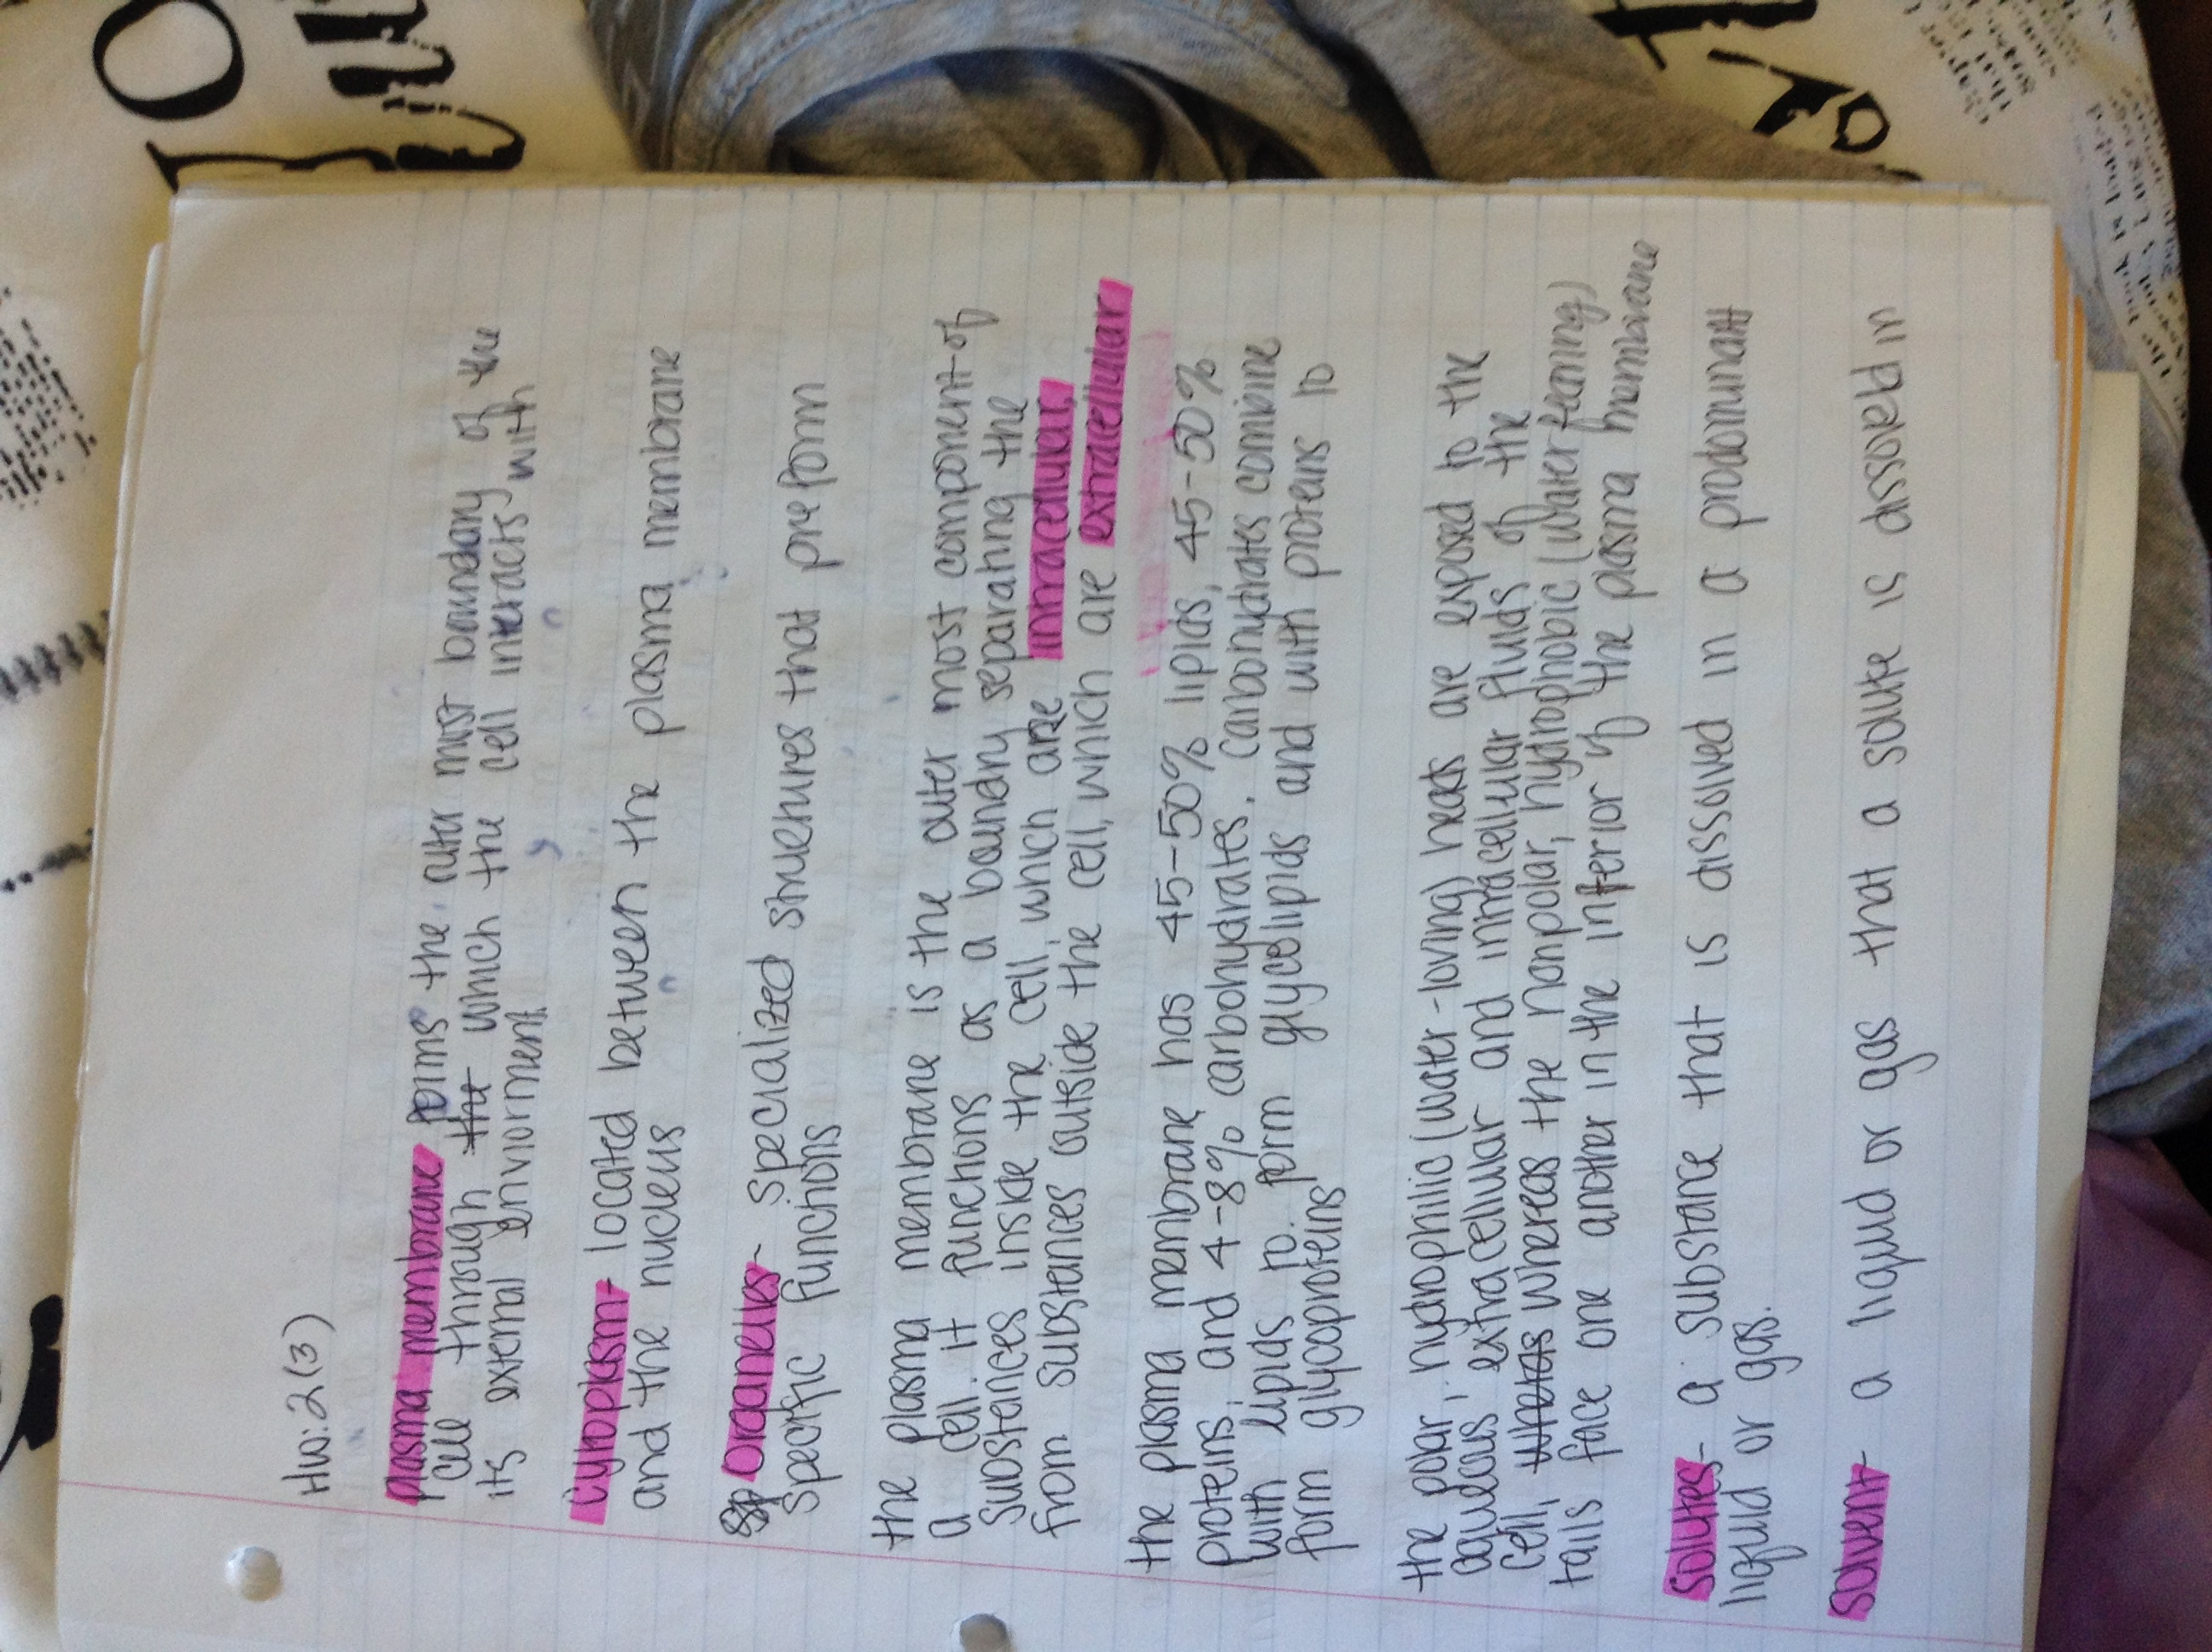 HW: 2(3)
plasma membrane forms the outer most boundary of the
cell through the which the cell interacts with
its external enviorment
Cytoplasm- located between the plasma membrane
and the nucleus
Sp organelles- specialized structures that preform
specific functions
the plasma membrane is the outer most component of
a cell. it functions as a boundry separating the
substances inside the cell, which are intracellular,
from substances outside the cell, which are extracellular
the plasma membrane has 45-50% lipids, 45-50%
proteins, and 4-8% carbohydrates. carbohydrates combine
with lipids to form glycolipids and with proteins to
form glycoproteins
the polar, hydrophilic (water-loving) heads are exposed to the
aqueous extracellular and intracellular fluids of the
cell, wheras whereas the nonpolar, hydrophobic (water fearing)
tails face one another in the interior of the plasma membrane
Solutes- a substance that is dissolved in a prodominatt
liquid or gas.
Solvent- a liquid or gas that a solute is dissoled in